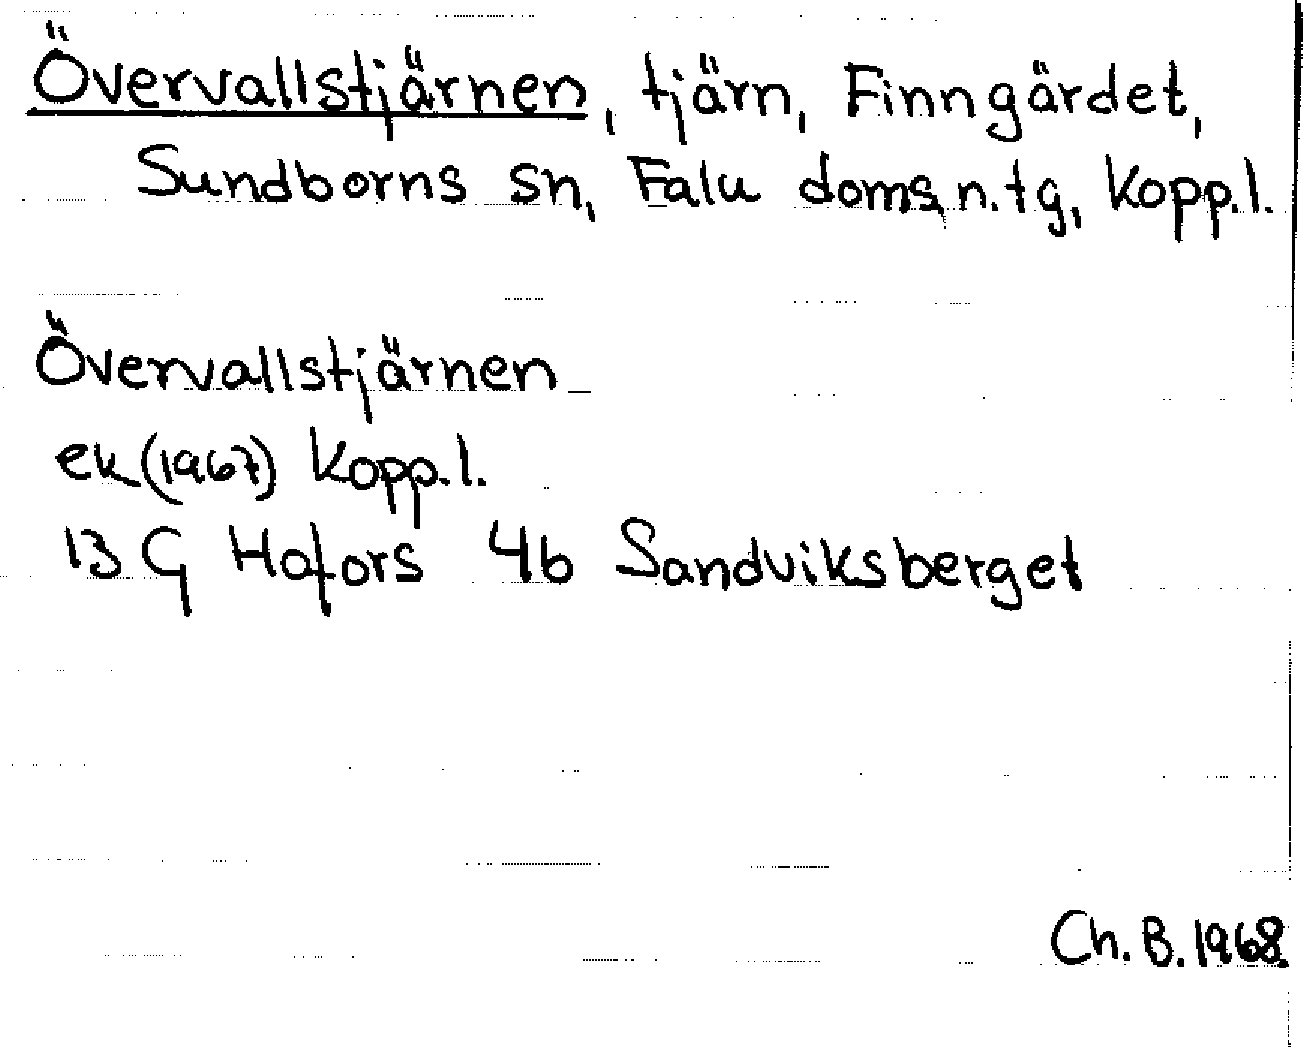 Övervallstjärnen, tjärn, Finngärdet,
Sundborns sn, Falu doms.n.tg, Kopp.l.
Övervallstjärnen
ek (1967) Kopp.l.
13 G Hofors 4b Sandviksberget
Ch. B. 1968.